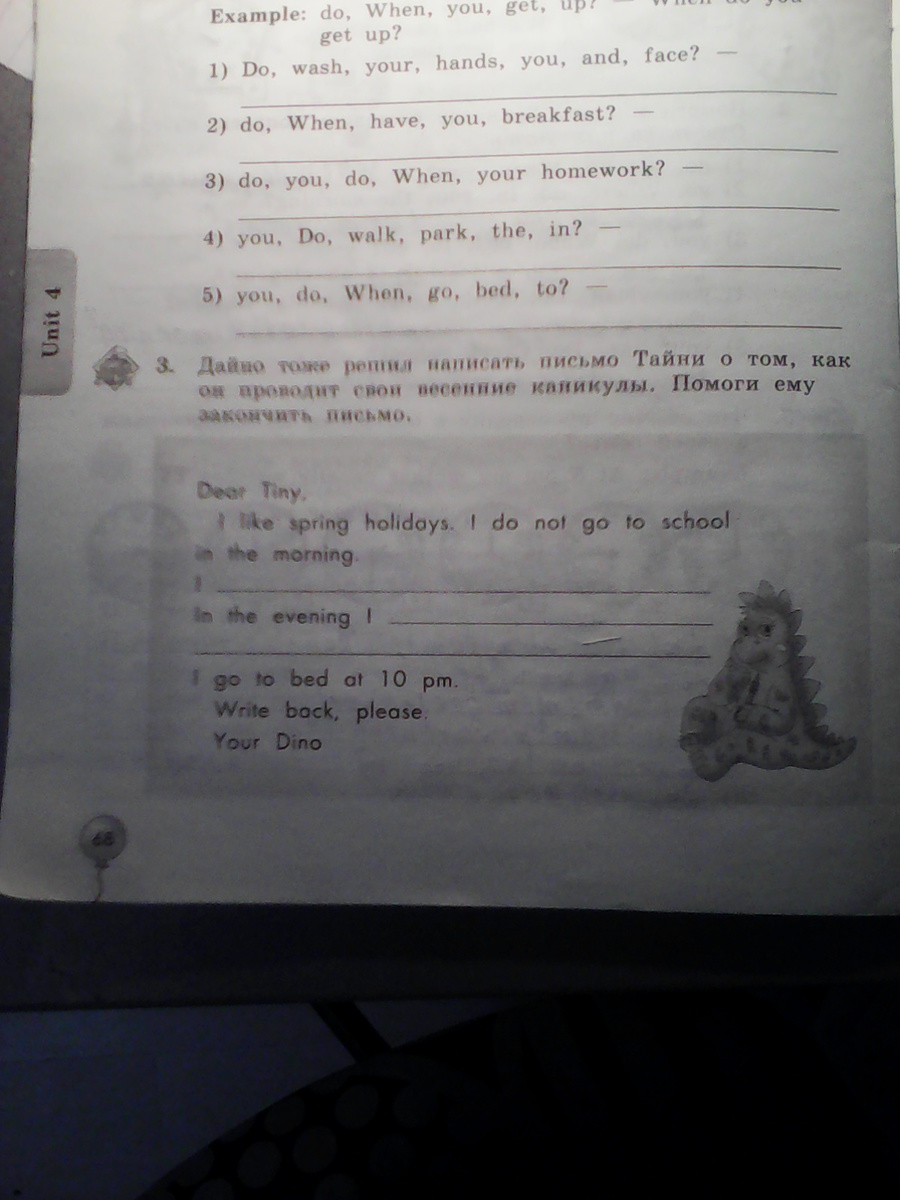 Example: do, When, you, get, up? — When do you
get up?
1) Do, wash, your, hands, you, and, face? —
2) do, When, have, you, breakfast? —
3) do, you, do, When, your homework? —
4) you, Do, walk, park, the, in? —
5) you, do, When, go, bed, to? —
Unit 4
3. Дайно тоже решил написать письмо Тайни о том, как
он проводит свои весенние каникулы. Помоги ему
закончить письмо.
Dear Tiny,
I like spring holidays. I do not go to school
in the morning.
I
In the evening I
I go to bed at 10 pm.
Write back, please.
Your Dino
68